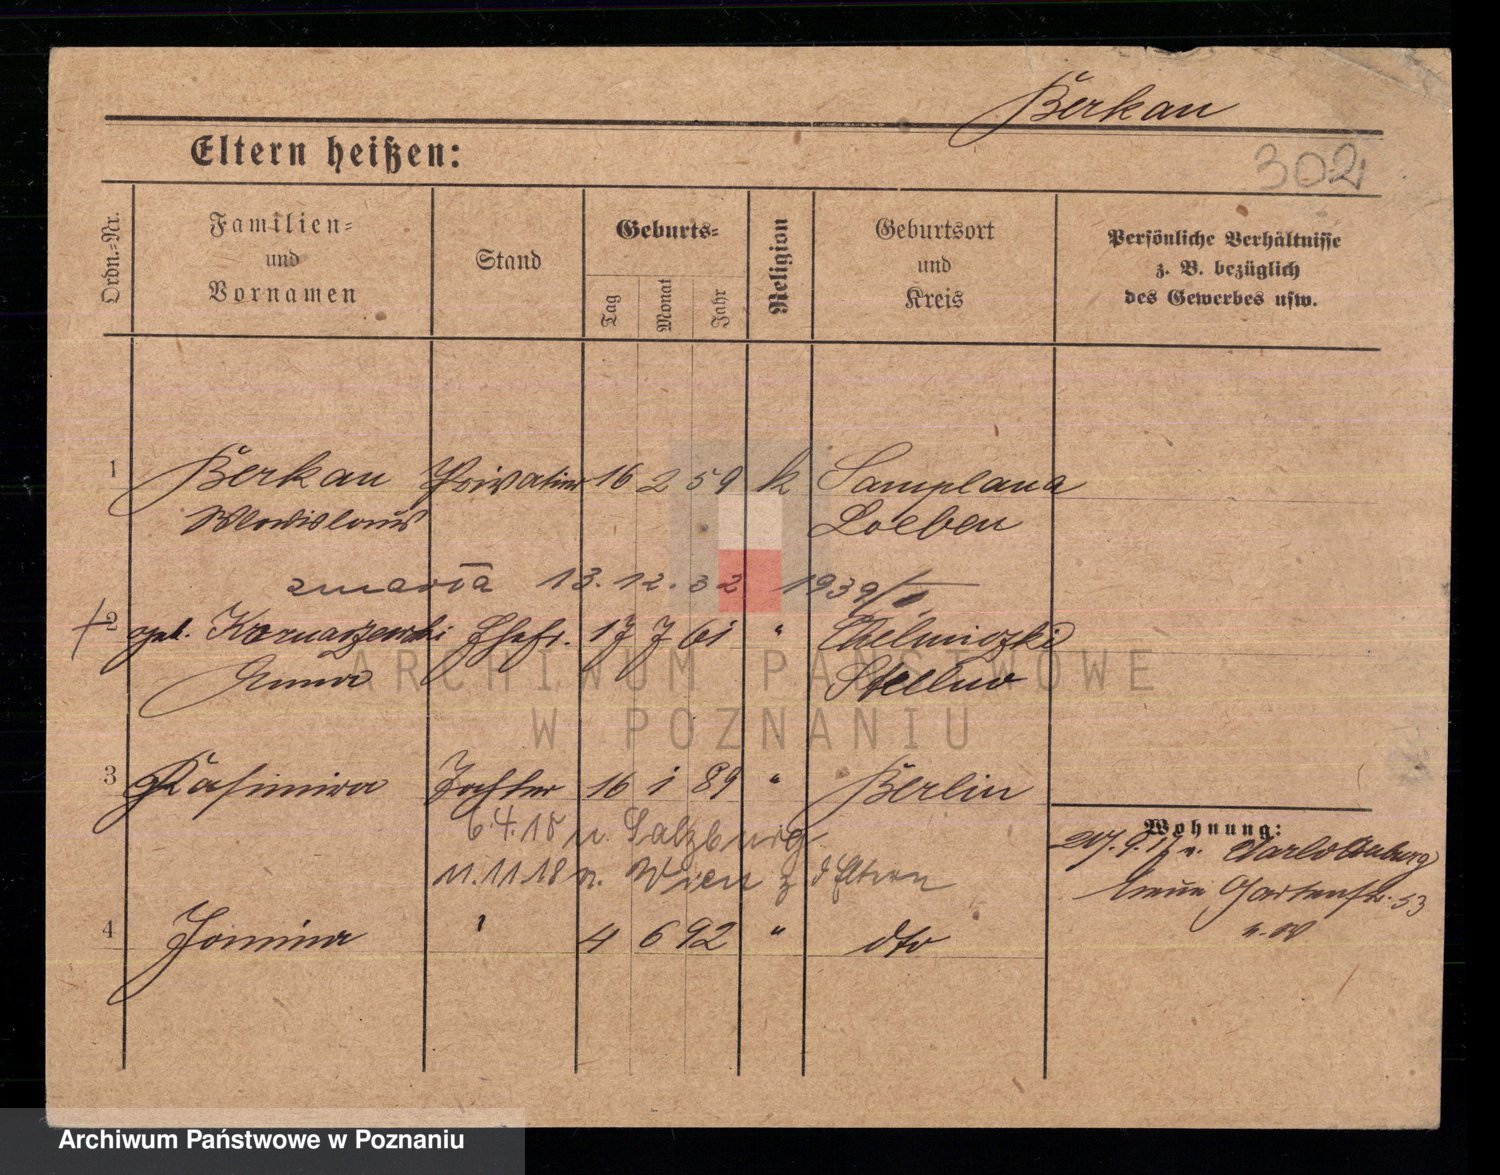 Berkau
302
Eltern heißen:
Ordn.=Nr.
Familien=
und
Vornamen
Stand
Geburts=
Tag
Monat
Jahr
Religion
Geburtsort
und
Kreis
Persönliche Verhältnisse
z. B. bezüglich
des Gewerbes usw.
1 Berkau Privatier 16 2 59 k Samplana
Wladislaus Loeben
zmarła 13.12.32 1939/
2 geb. Ehefr. 17 7 61 "
Anna
3 Kasimira Tochter 16 1 89 " Berlin
6.4.18 n. Salzburg
11.11.18 n. Wien z d Eltern
4 Janina 4 6 92 " dto
Wohnung:
Charlottenburg
Neue Gartenstr. 53
ARCHIWUM PAŃSTWOWE
W POZNANIU
Archiwum Państwowe w Poznaniu